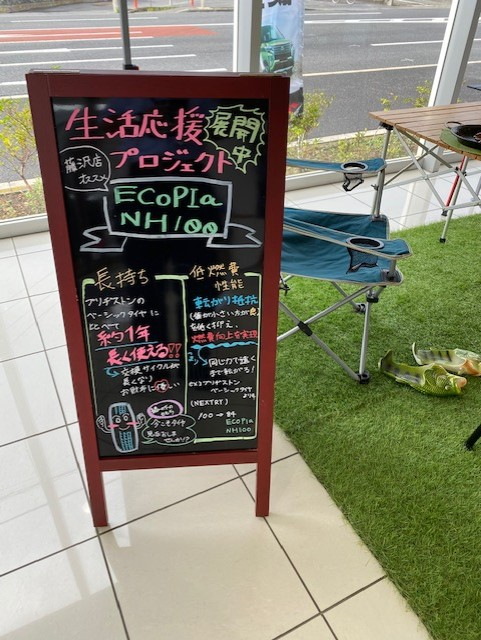 生活応援
プロジェクト
展開中
藤沢店
オススメ
ECOPIA
NH100
長持ち
ブリヂストンの
ベーシックタイヤに
比べて
約1年
長く使える!!
交換サイクルが
長くなり
お財布に優しい
今こそタイヤ
見直しませんか?
低燃費
性能
転がり抵抗
(値が小さい方が良)
を低く抑え、
燃費向上を実現
同じ力で遠く
まで転がる!
ex)ブリヂストン
ベーシックタイヤ
より
(NEXTRY)
100→84
ECOPIA
NH100